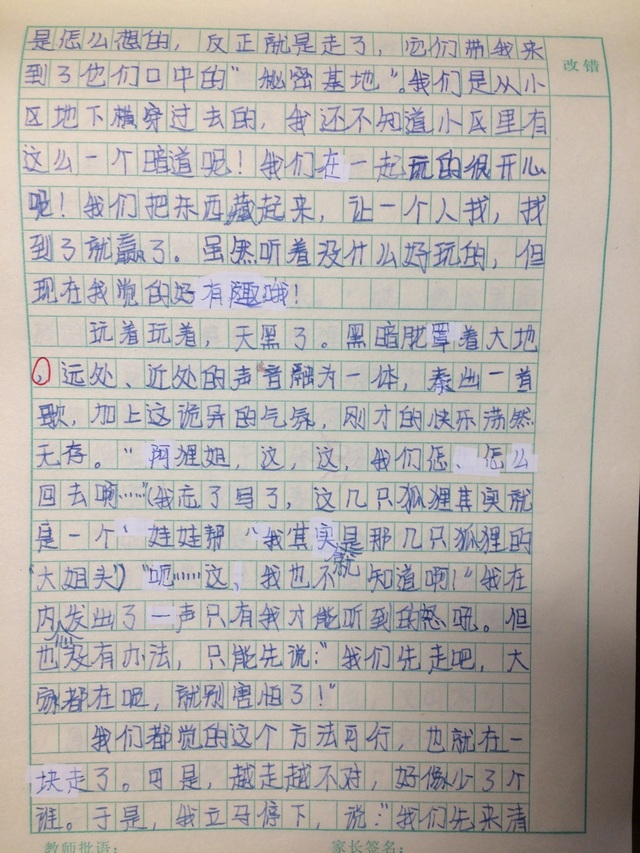 是怎么想的，反正就是走了，它们带我来
改错
到了他们口中的“秘密基地”。我们是从小
区地下横穿过去的，我还不知道小区里有
这么一个暗道呢！我们在一起玩的很开心
呢！我们把东西藏起来，让一个人找，找
到了就赢了。虽然听着没什么好玩的，但
现在我觉的好有趣哦！
玩着玩着，天黑了。黑暗笼罩着大地
，远处、近处的声音融为一体，奏出一首
歌，加上这诡异的气氛，刚才的快乐荡然
无存。“阿狸姐，这，这，我们怎、怎么
回去啊……”（我忘了写了，这几只狐狸其实就
是一个“娃娃帮”我其实就是那几只狐狸的
“大姐头”）“呃……这、我也不知道啊！”我在
内心发出了一声只有我才能听到的怒吼。但
也没有办法，只能先说：“我们先走吧，大
家都在呢，就别害怕了！”
我们都觉的这个方法可行，也就在一
块走了。可是，越走越不对，好像少了个
谁。于是，我立马停下，说：“我们先来清
教师批语：
家长签名：